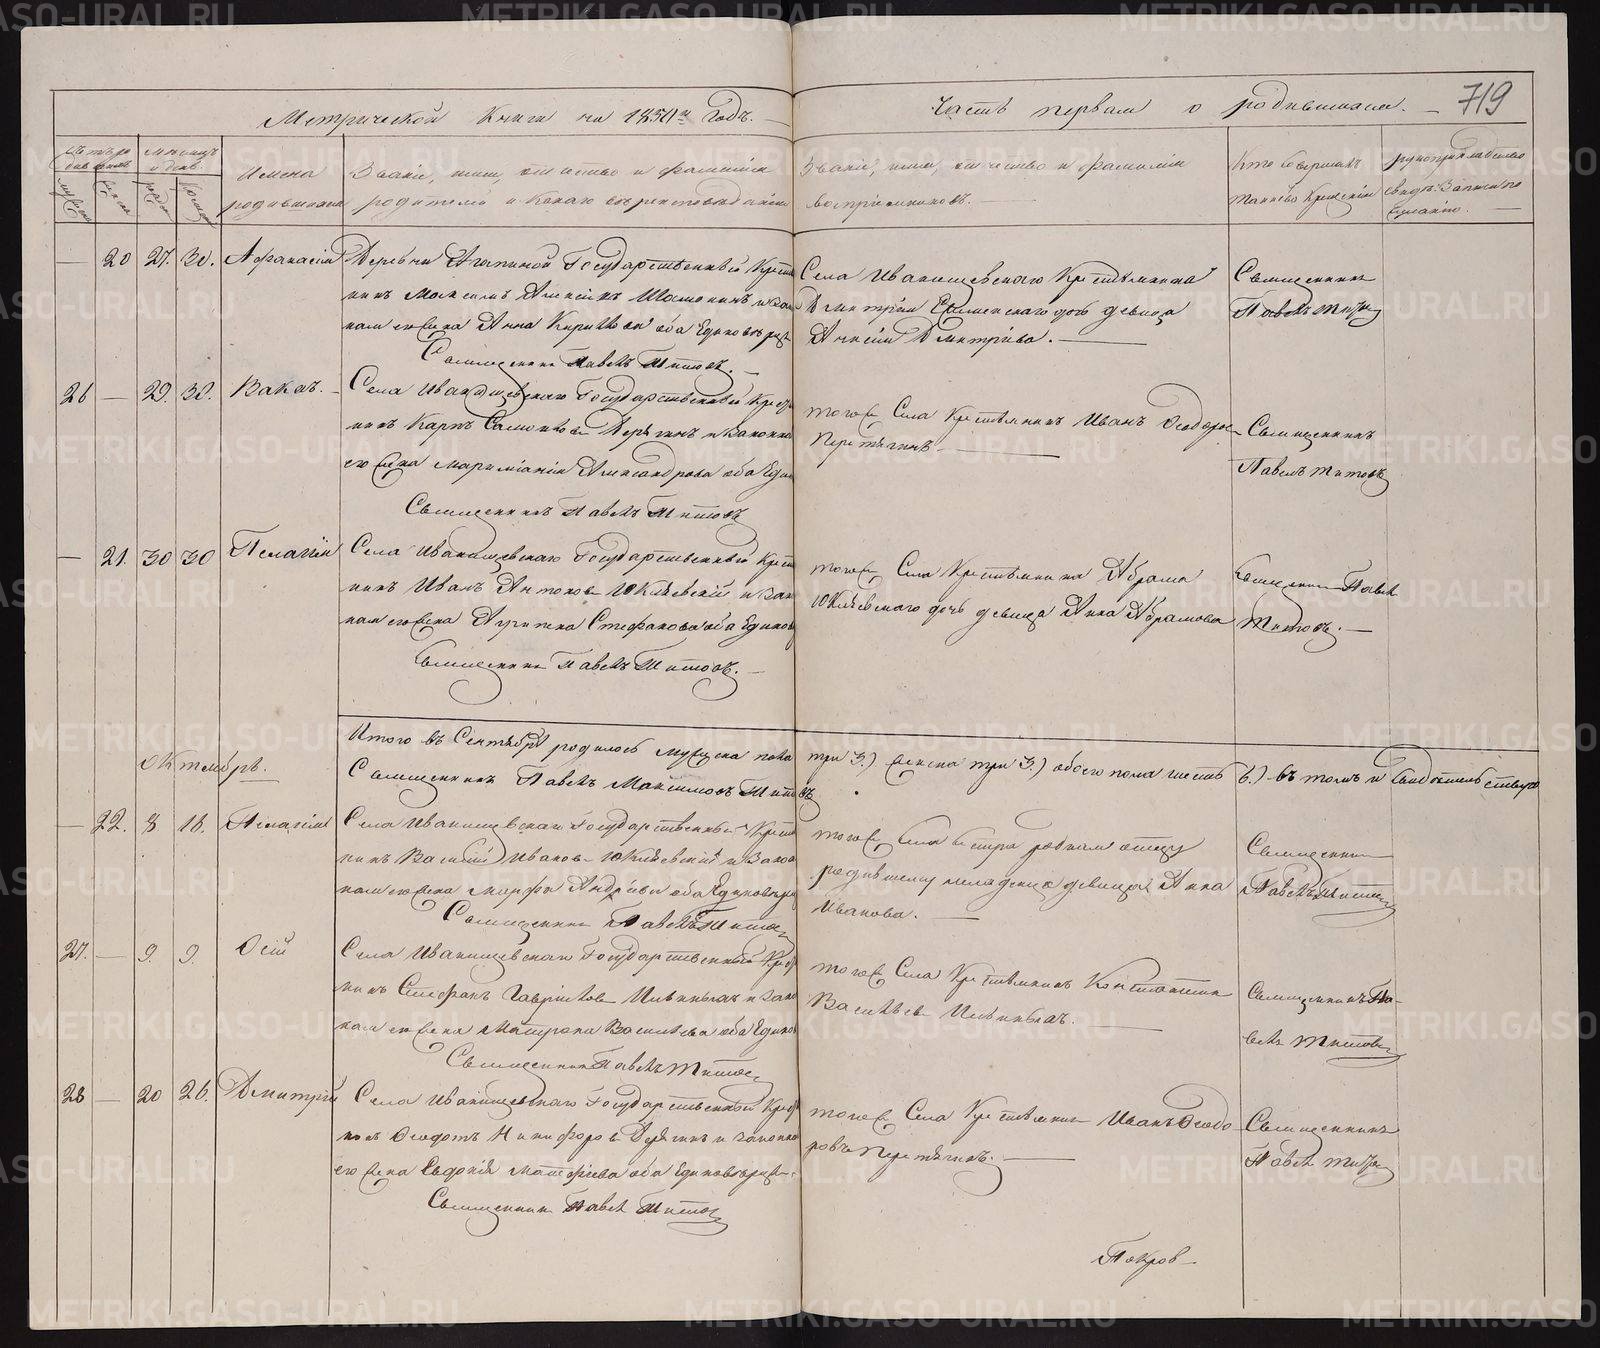 Метрической Книги на 1850й годъ.
Часть первая о родившихся.
719
Имена
родившихся
Званіе, имя, отчество и фамилія
родителей и какого вѣроисповѣданія
Званіе, имя, отчество и фамилія
воспріемниковъ.
Кто совершалъ
таинство Крещенія
рукоприкладство
свидѣ. записи по
желанію.
20 27. 30. Афанасій
Деревни Государственный Крестья
нинъ Максимъ Алексѣевъ и закон
ная его жена Анна оба Единовѣрцы
Священникъ Павелъ Титовъ.
Села Иванищевскаго Крестьянина
Димитрія дочь девица
Димитріева.
Священникъ
Павелъ Титовъ
26 — 29. 30. Вакхъ.
Села Иванищевскаго Государственный Крестья
нинъ Карпъ и законная
его жена Александрова оба Един
Священникъ Павелъ Титовъ
тогоже Села Крестьянинъ Иванъ Ѳеодоро
Перетягинъ
Священникъ
Павелъ Титовъ
— 21. 30 30 Пелагія
Села Иванищевскаго Государственный Крестья
нинъ Иванъ Антоновъ Юкляевскій и закон
ная его жена Стефанова оба Единов
Священникъ Павелъ Титовъ.
тогоже Села Крестьянина Абрама
Юкляевскаго дочь девица Анна Абрамова
Священникъ Павелъ
Титовъ.
Итого въ Сентябрѣ родилось мужеска пола три 3.) женска три 3.) обоего пола шесть 6.) въ томъ и свидѣтельствую
Священникъ Павелъ Максимовъ Титовъ
Октябрь.
— 22. 8 18. Пелагія
Села Иванищевскаго Государственный Крестья
нинъ Василій Ивановъ Юкляевскій и закон
ная его жена Марфа Андреева оба Единовѣрцы
Священникъ Павелъ Титовъ
тогоже Села сестра родная отцу
родившему младенца девица Анна
Иванова.
Священникъ
Павелъ Титовъ
27. — 9. 9. Осій
Села Иванищевскаго Государственный Крестья
нинъ Стефанъ Гавриловъ Ильиныхъ и закон
ная его жена Матрона Васильева оба Единов
Священникъ Павелъ Титовъ
тогоже Села Крестьянинъ Константинъ
Васильевъ Ильиныхъ.
Священникъ Па-
велъ Титовъ
28 — 20 26. Димитрій
Села Иванищевскаго Государственный Крестья
нинъ Ѳеодотъ Никифоровъ и законная
его жена Евдокія Матфіева оба Единовѣрцы.
Священникъ Павелъ Титовъ
тогоже Села Крестьянинъ Иванъ Ѳеодо
ровъ Перетягинъ.
Священникъ
Павелъ Титовъ
Покров-
METRIKI.GASO-URAL.RU